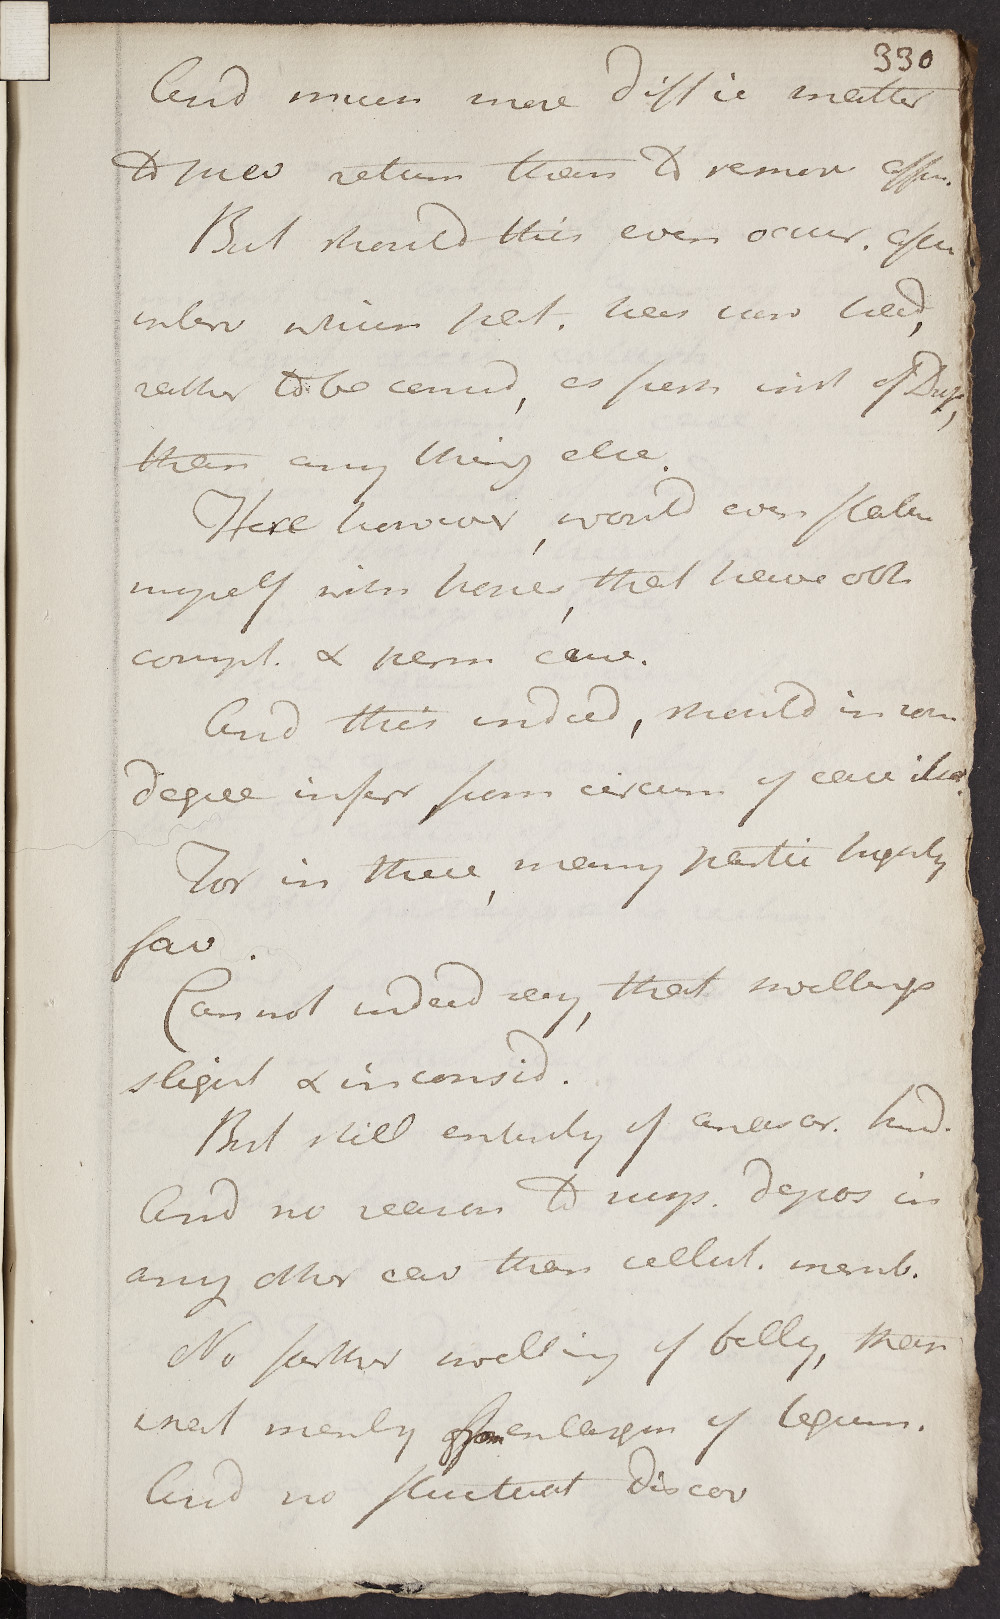 330
And much more diffic matter
to prev return than to remov affec.
But should this even occur, after
interv which pat. has now had,
rather to be consid, as fresh inst of Dis,
than any thing else.
Here however, would even flatter
myself with hopes, that have obt
compl. & perm cure.
And this indeed, should in some
degree infer from circum of case itse.
For in these, many partic highly
fav.
Cannot indeed say, that swellings
slight & inconsid.
But still entirely of anasar. kind.
And no reason to susp. depos in
any other cav than cellul. memb.
No farther swelling of belly, than
what merely enlargm of tegum.
And no fluctuat discov